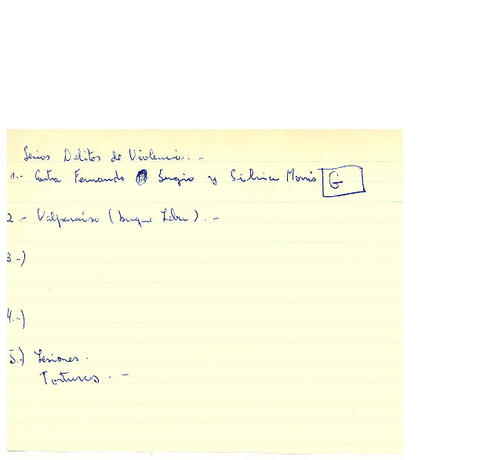 Serios Delitos de Violencia. -
1.- Contra Fernando Sergio y Silvia Morris G
2.- Valparaíso (buque Lebu). -
3.-)
4.-)
5.-) Lesiones.
Torturas. -